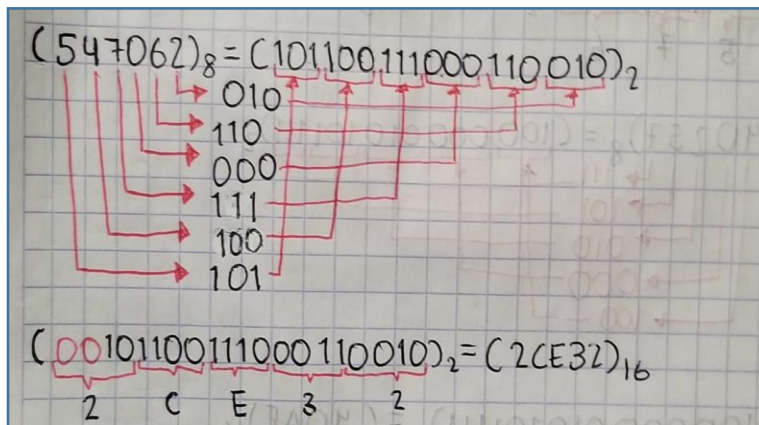 (547062)₈ = (101100111000110010)₂
010
110
000
111
100
101
(00101100111000110010)₂ = (2CE32)₁₆
2 C E 3 2